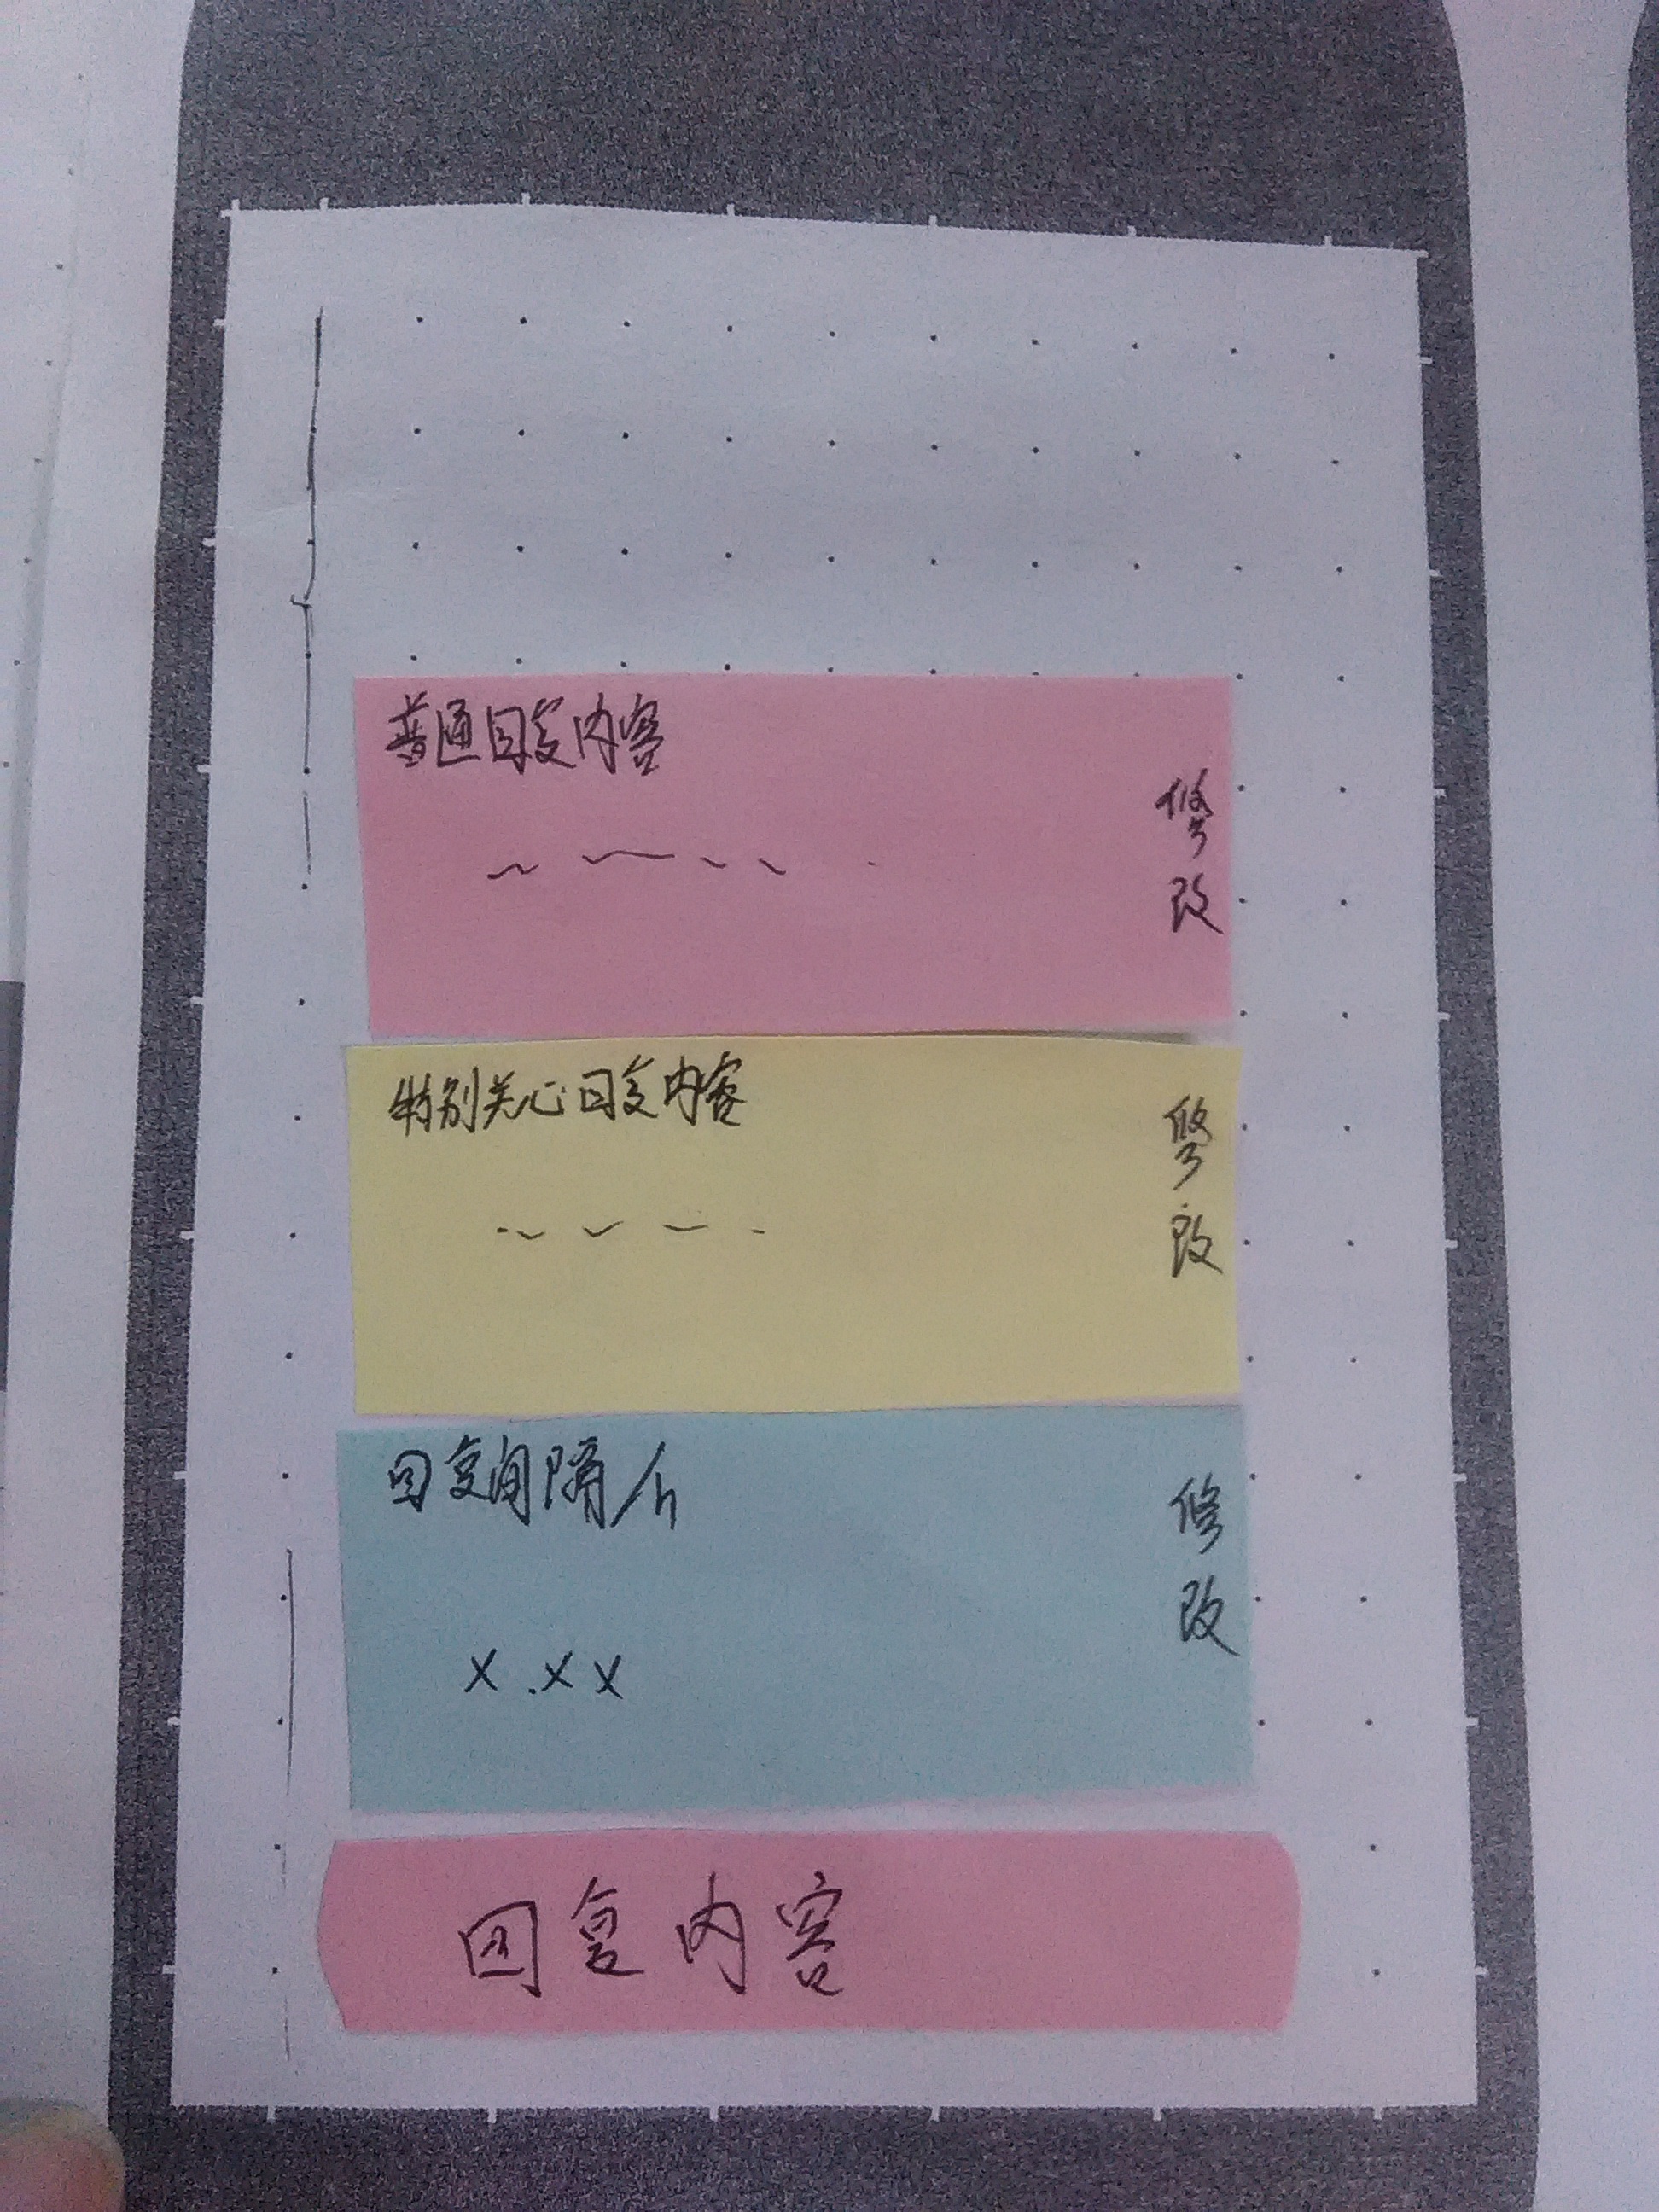 普通回复内容
修改
特别关心回复内容
修改
回复间隔/h
x.xx
修改
回复内容